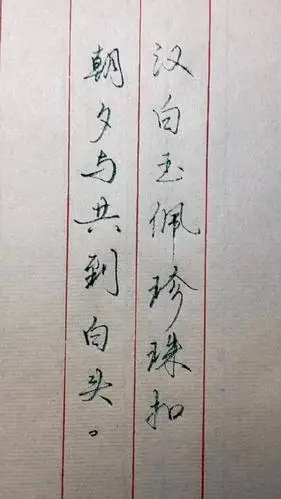 汉白玉佩珍珠扣
朝夕与共到白头。